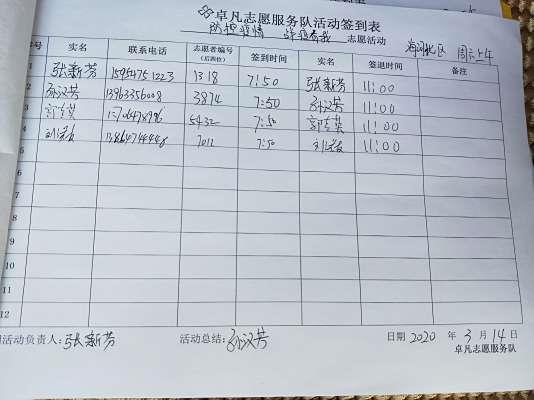 卓凡志愿服务队活动签到表
防控疫情 志愿活动 周六上午
号 实名 联系电话 志愿者编号 (后四位) 签到时间 实名 签退时间 备注
张新芳 15954751223 1318 7:50 张新芳 11:00
孙汉芳 13963356008 3874 7:50 孙汉芳 11:00
5432 7:50 11:00
7:50 11:00
5
6
7
8
9
10
11
12
活动负责人:张新芳 活动总结:孙汉芳 日期 2020 年 3 月 14 日
卓凡志愿服务队